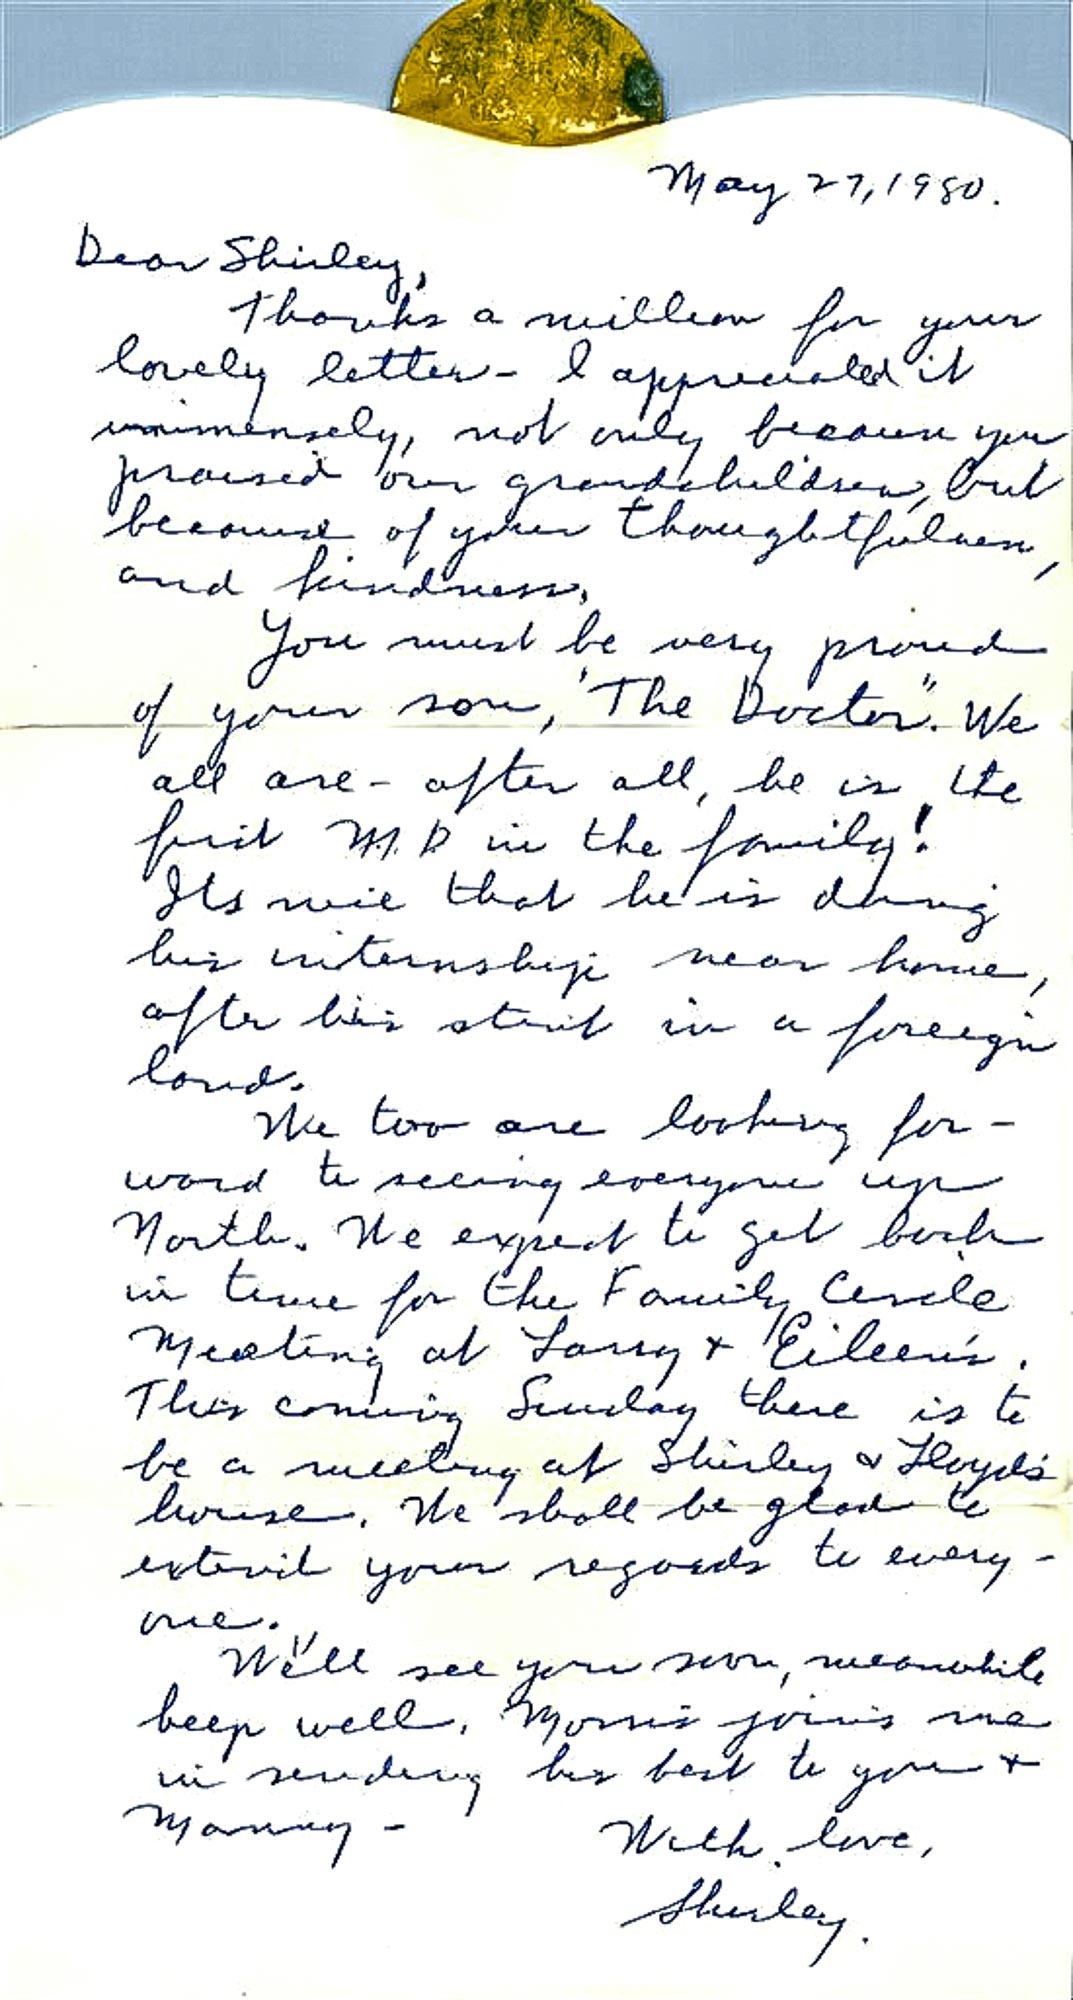 May 27, 1980.
Dear Shirley,
Thanks a million for your
lovely letter - I appreciated it
immensely, not only because you
praised our grandchildren, but
because of your thoughtfulness,
and kindness.
You must be very proud
of your son, "The Doctor". We
all are - after all, he is the
first M.D in the family!
Its nice that he is doing
his internship near home,
after his stint in a foreign
land.
We too are looking for-
ward to seeing everyone up
North. We expect to get back
in time for the Family Circle
Meeting at Larry & Eileen's.
This coming Sunday there is to
be a meeting at Shirley & Floyd's
house. We shall be glad to
extend your regards to every-
one.
We'll see you soon, meanwhile
keep well. Morris joins me
in sending his best to you &
Manny -
With love,
Shirley.